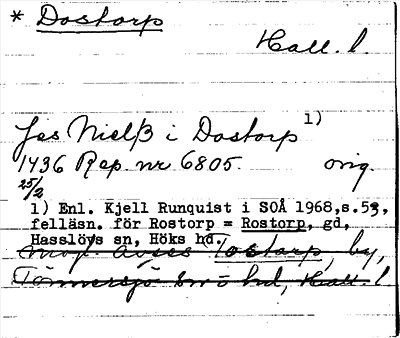 * Dostorp
Hall. l.
Jes Nielß i Dostorp 1)
1436 Rep. nr 6805. orig.
25/2
1) Enl. Kjell Runquist i SOÅ 1968,s.53,
felläsn. för Rostorp = Rostorp, gd,
Hasslövs sn, Höks hd.
Mojl. avses Tostarp, by,
Tönnersjö sn o hd, Hall. l